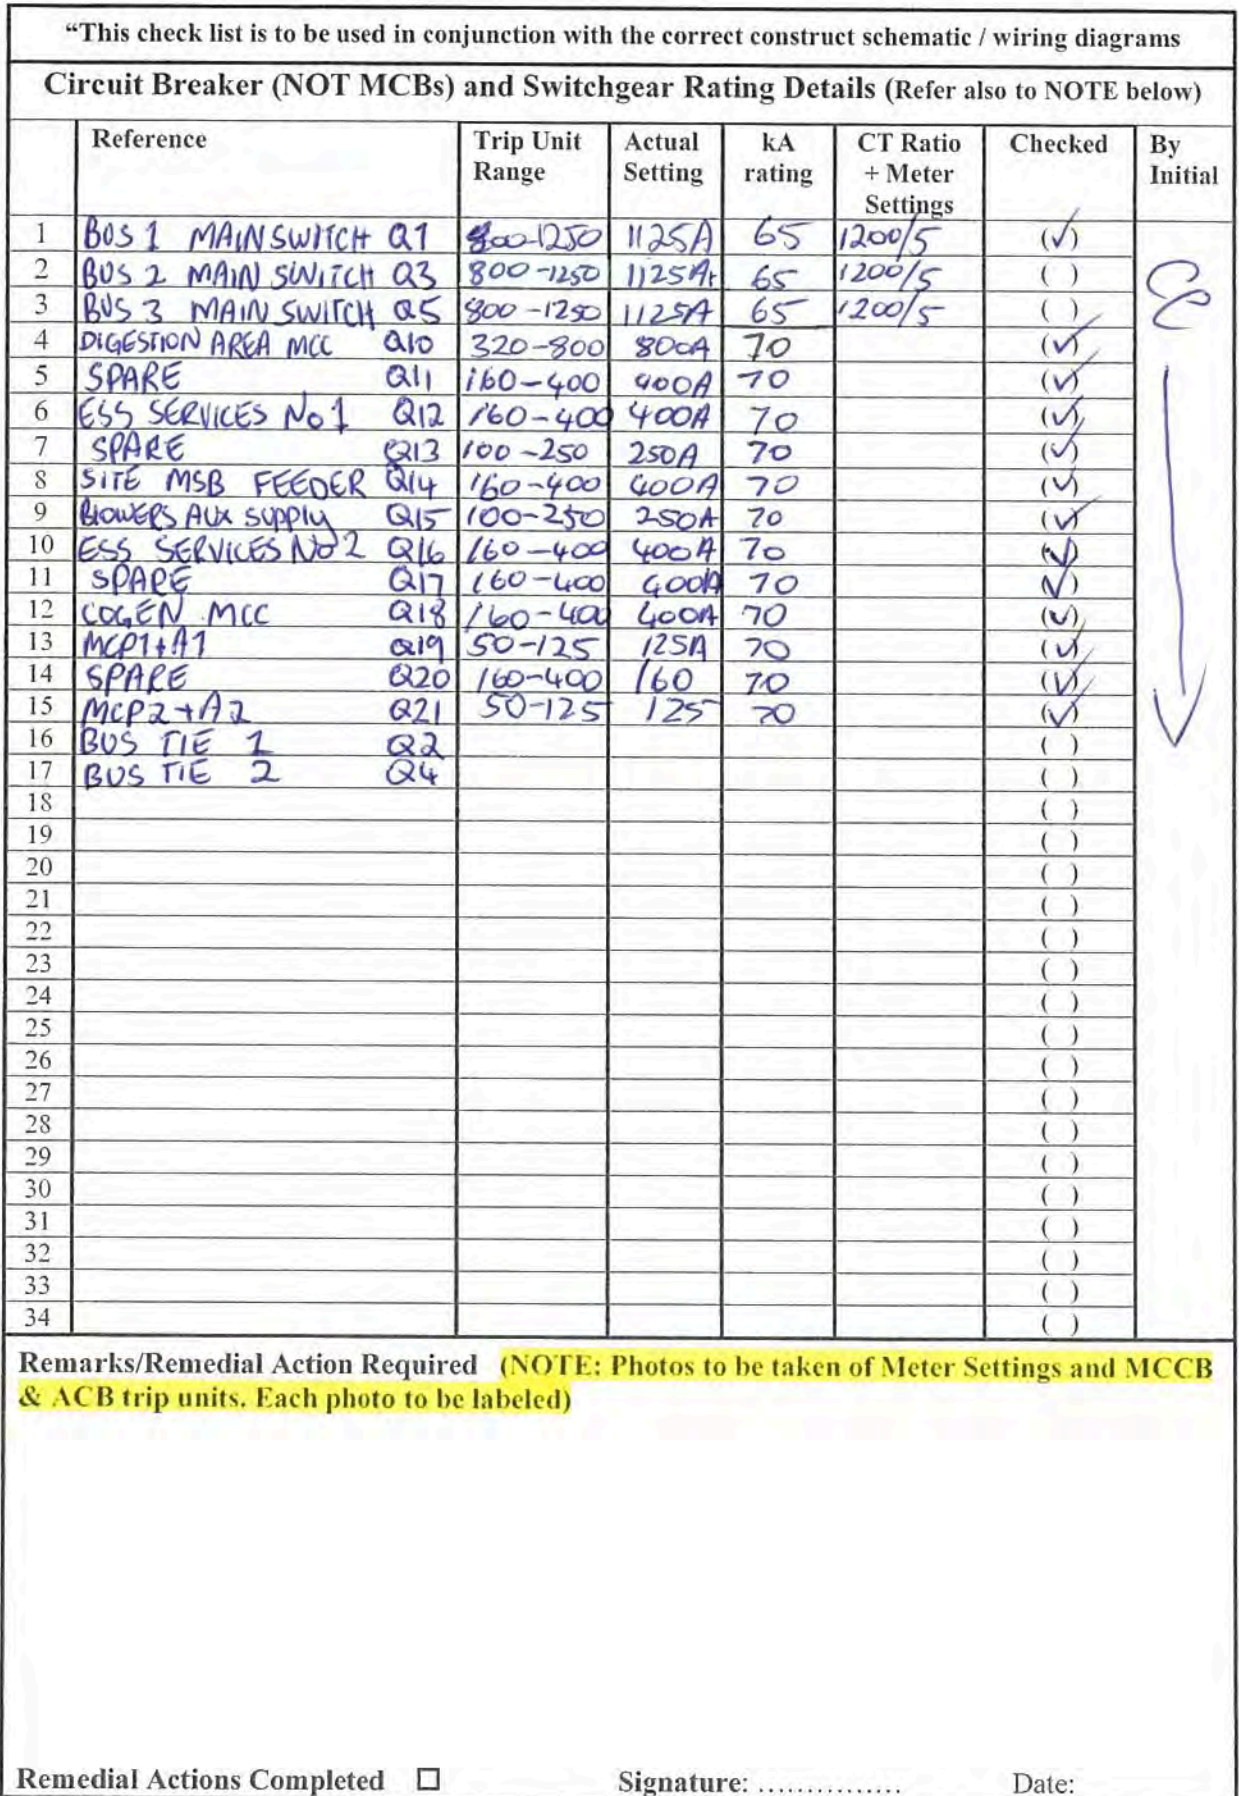 “This check list is to be used in conjunction with the correct construct schematic / wiring diagrams
Circuit Breaker (NOT MCBs) and Switchgear Rating Details (Refer also to NOTE below)
Reference Trip Unit Range Actual Setting kA rating CT Ratio + Meter Settings Checked By Initial
1 BUS 1 MAIN SWITCH Q1 800-1250 1125A 65 1200/5 (✓)
2 BUS 2 MAIN SWITCH Q3 800-1250 1125A 65 1200/5 ( )
3 BUS 3 MAIN SWITCH Q5 800-1250 1125A 65 1200/5 ( )
4 DIGESTION AREA MCC Q10 320-800 800A 70 (✓)
5 SPARE Q11 160-400 400A 70 (✓)
6 ESS SERVICES No 1 Q12 160-400 400A 70 (✓)
7 SPARE Q13 100-250 250A 70 (✓)
8 SITE MSB FEEDER Q14 160-400 400A 70 (✓)
9 BLOWERS AUX SUPPLY Q15 100-250 250A 70 (✓)
10 ESS SERVICES No 2 Q16 160-400 400A 70 (✓)
11 SPARE Q17 160-400 400A 70 (✓)
12 COGEN MCC Q18 160-400 400A 70 (✓)
13 MCP1+A1 Q19 50-125 125A 70 (✓)
14 SPARE Q20 160-400 160 70 (✓)
15 MCP2+A2 Q21 50-125 125 70 (✓)
16 BUS TIE 1 Q2 ( )
17 BUS TIE 2 Q4 ( )
18 ( )
19 ( )
20 ( )
21 ( )
22 ( )
23 ( )
24 ( )
25 ( )
26 ( )
27 ( )
28 ( )
29 ( )
30 ( )
31 ( )
32 ( )
33 ( )
34 ( )
Remarks/Remedial Action Required (NOTE: Photos to be taken of Meter Settings and MCCB
& ACB trip units. Each photo to be labeled)
Remedial Actions Completed ☐ Signature: ............... Date: